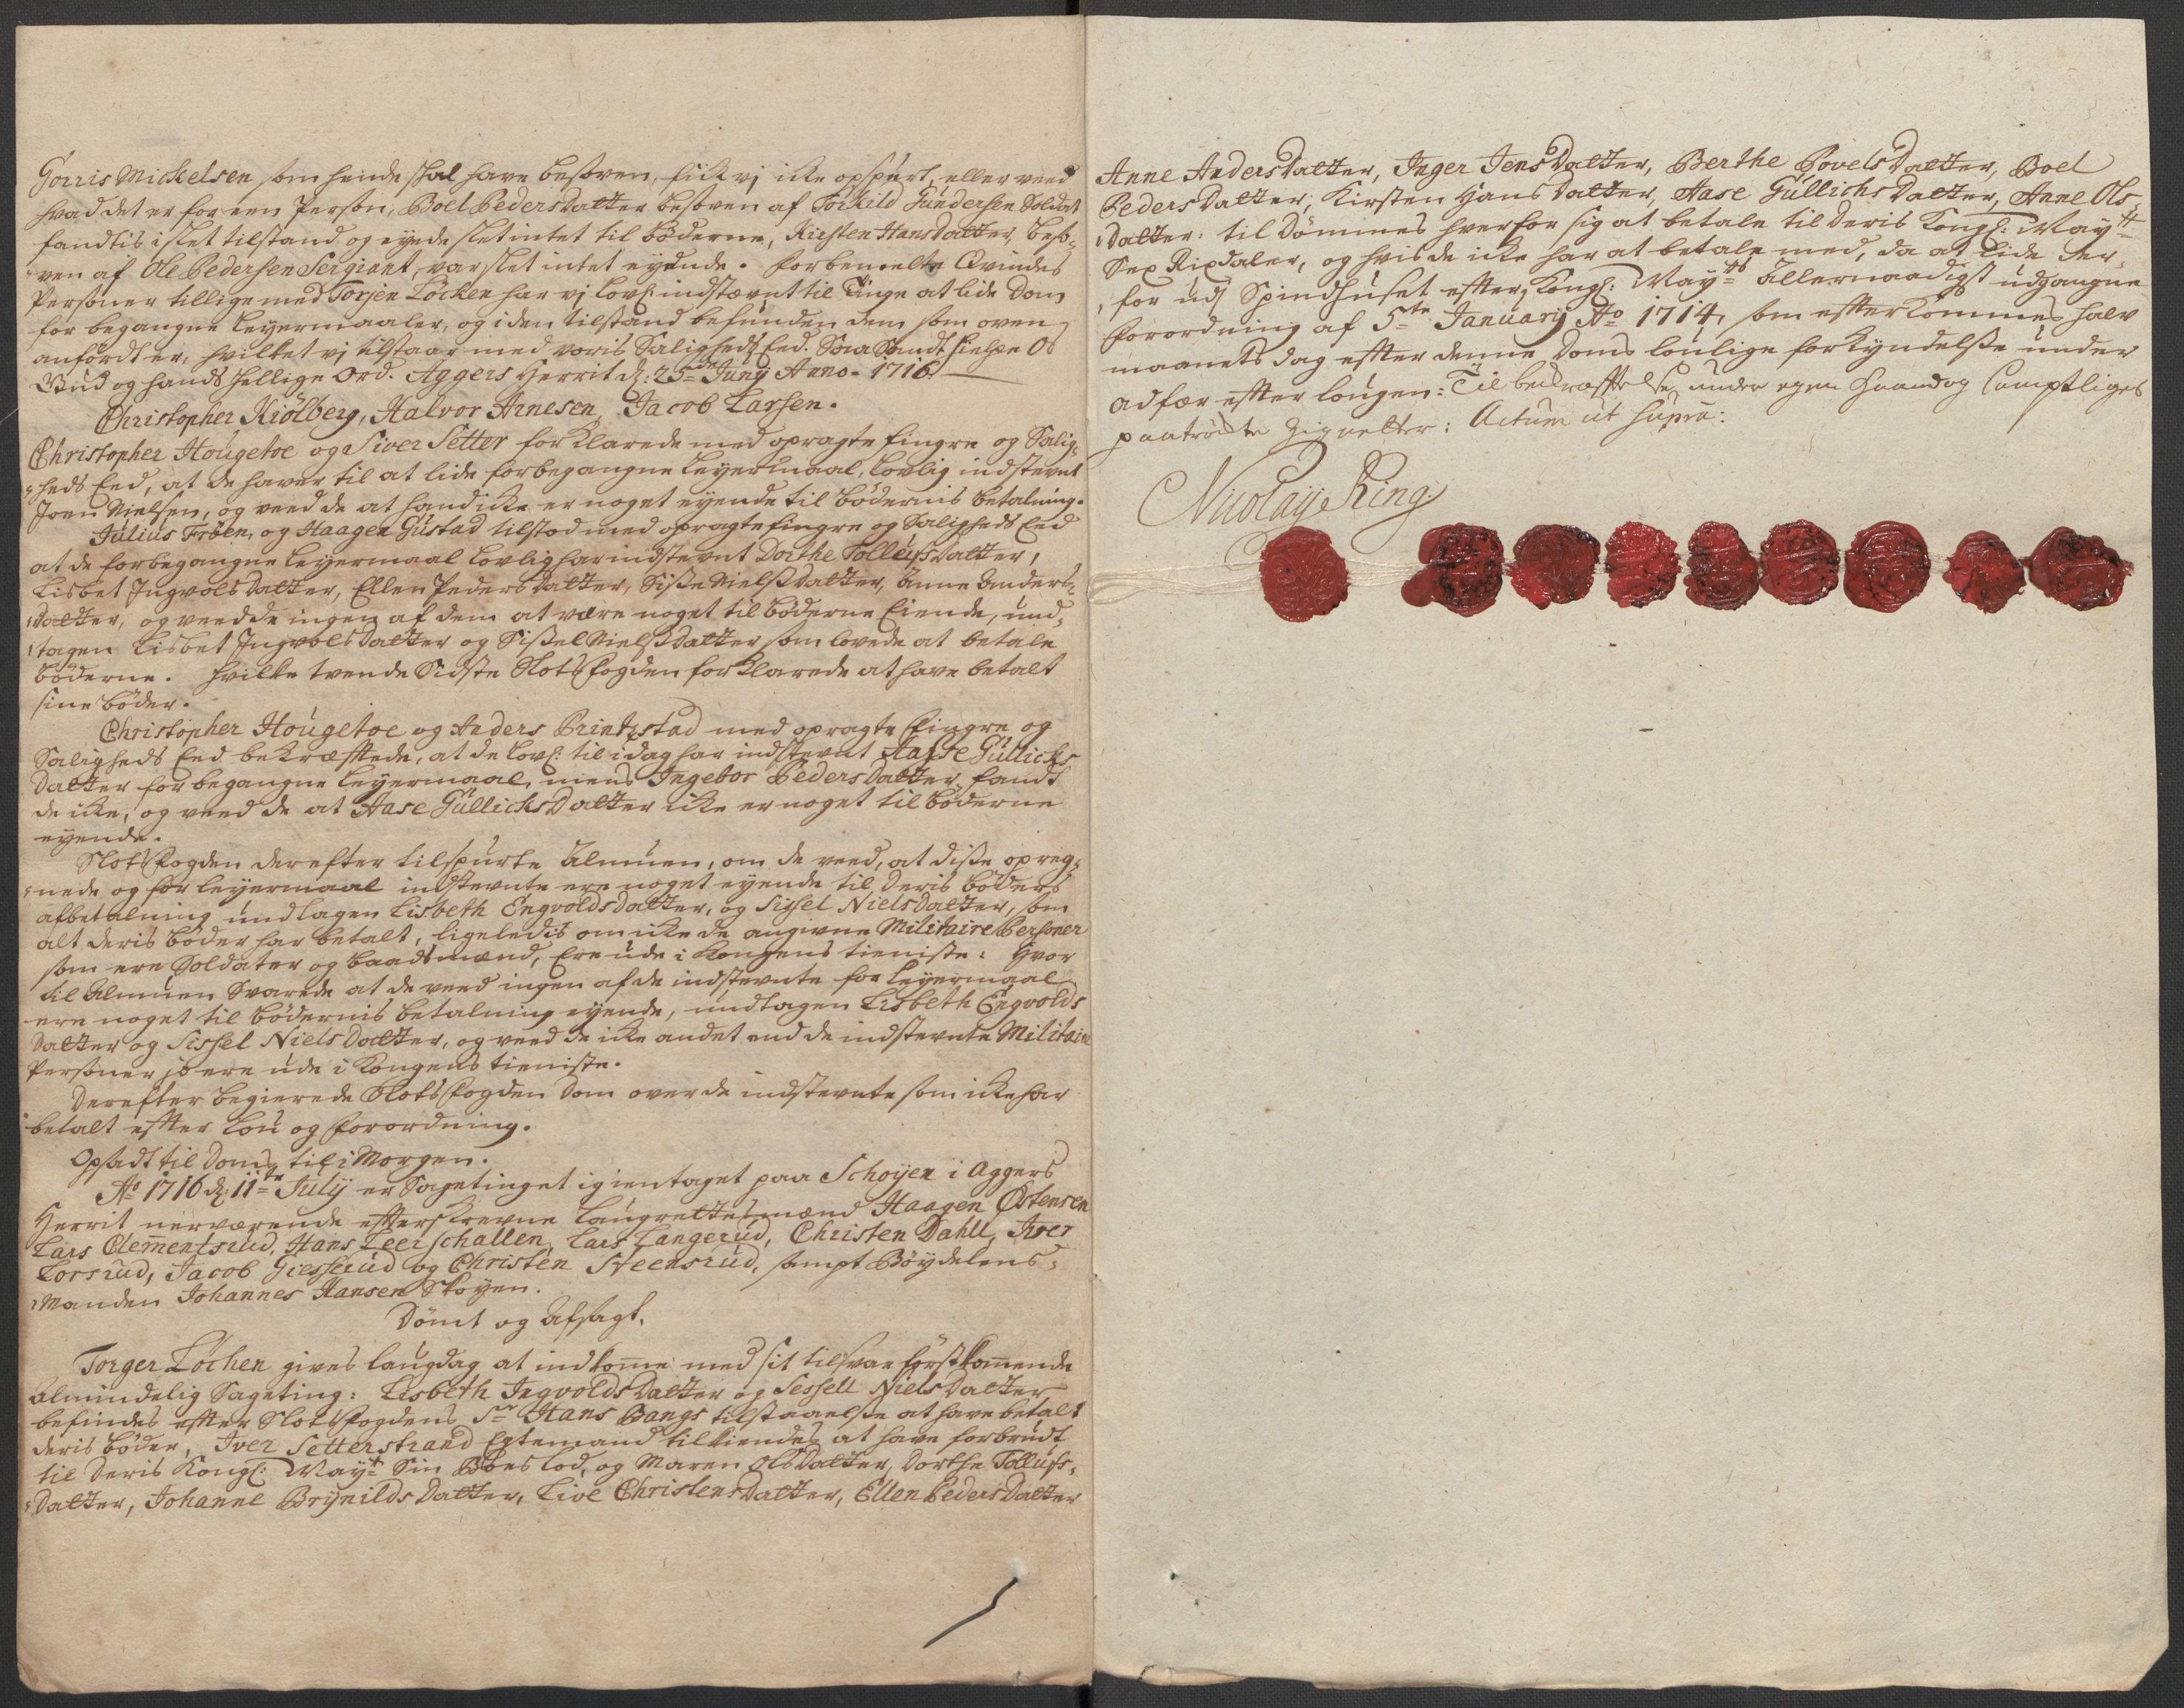 Gorris Mickelsen som hende skal have besoven, fick vj icke opspurt, eller veed
hvad det er for een Person, Boel Pedersdatter besoven af Torkild Gundersen Soldat
fandtis i slet tilstand og eyede slet intet til bøderne, Kirsten Hansdatter, beso-
ven af Ole Pedersen Sergiant, var slet intet eyende. forbemelte Qvindes
Personer tillige med Torjen Löcken har vj lovl: indstævnt til Tinge at lide Dom
for begangne Leyermaaler, og i den tilstand befunden dem som oven
anfördt er, hvilket vj tilstaar med voris Saligheds Eed. Saa Sandt hielpe Os
Gud og hands hellige Ord. Aggers Herrit d: 25de Junij Anno 1716.
Christopher Kiölberg, Halvor Arnesen, Jacob Larsen.
Christopher Hougetoe og Siver Setter forklarede med opragte fingre og Salig-
heds Eed, at de haver til at lide for begangne Leyermaal, lovlig indstevnt
Joen Nielsen, og veed de at hand icke er noget eyende til bødernis betalning.
Julius Fröen, og Haagen Gustad tilstod med opragte fingre og Saligheds Eed
at de for begangne Leyermaal lovlig har indstevnt Dorthe Tollufsdatter,
Lisbet Ingvolsdatter, Ellen Pedersdatter, Sisse Nielsdatter, Anne Anders-
datter, og veed de ingen af dem at være noget til bøderne Eiende, und-
tagen Lisbet Ingvolsdatter og Sissel Nielsdatter som lovede at betale
bøderne. hvilke tvende Sidste Slotsfogden forklarede at have betalt
sine bøder.
Christopher Hougetoe og Anders Printzstad med opragte fingre og
Saligheds Eed bekræftede, at de lovl: til i dag har indstevnt Aasse Gullichs
datter for begangne Leyermaal, mens Ingebor Pedersdatter fandt
de icke, og veed de at Aase Gullichsdatter icke er noget til bøderne
eyende.
Slotsfogden derefter tilspurte Almuen, om de veed, at disse opreg-
nede og for Leyermaal indstevnte ere noget eyende til deris bøders
afbetalning undtagen Lisbeth Engvoldsdatter, og Sissel Nielsdatter, som
alt deris bøder har betalt, ligeledis om icke de angivne Militaire Personer
som ere Soldater og baadsmænd, Ere ude i Kongens tieniste: Hvor
til Almuen Svarede at de veed ingen af de indstevnte for Leyermaal
ere noget til bødernis betalning eyende, undtagen Lisbeth Engvolds
datter og Sissel Nielsdatter, og veed de icke andet end de indstevnte Militaire
Personer jo ere ude i Kongens tieniste.
Derefter begierede Slotsfogden Dom over de indstevnte som icke har
betalt efter Lou og forordning.
Opsadt til Doms til i Morgen.
Ao 1716 d: 11te Julij er Sagetinget igientaget paa Schøyen i Aggers
Herrit nerværende efterskrevne Laugrettesmænd Haagen Östensen
Lars Clementsrud, Hans Leerschallen, Lars Langerud, Christen Dahll, Iver
Lorsrud, Jacob Giesserud og Christen Steensrud, sampt Bøydelens-
Manden Johannes Hansen Skoyen.
Dömt og Afsagt.
Torger Löchen gives laugdag at indkomme med sit tilsvar förstkommende
almindelig Sageting: Lisbeth Ingvoldsdatter og Sessell Nielsdatter
befindes efter Slotsfogdens Sr Hans Bangs tilstaaelse at have betalt
deris bøder, Iver Setterstrand Egtemand tilkiendes at have forbrudt
til Deris Kongl: Mayt Sin Boeslod, og Maren Olsdatter, Dorthe Tollufs-
datter, Johanne Brynildsdatter, Live Christensdatter, Ellen Pedersdatter
Anne Andersdatter, Inger Jensdatter, Berthe Povelsdatter, Boel
Pedersdatter, Kirsten Hansdatter, Aase Gullichsdatter, Anne Ols-
datter: til Dömmes hver for sig at betale til Deris Kongl: Maytt
Sex Rixdaler, og hvis de icke har at betale med, da at lide der-
for udj Spindhuset efter Kongl: Maytts allernaadigst udgangne
forordning af 5te Januarij Ao 1714, som efterkommes halv
maanets dag efter denne Doms loulige forkyndelse under
adfær efter lougen: Til bekræftelse under egen haand og samptliges
paatrökte Zigneter: Actum ut supra:
Nicolaÿe Ring